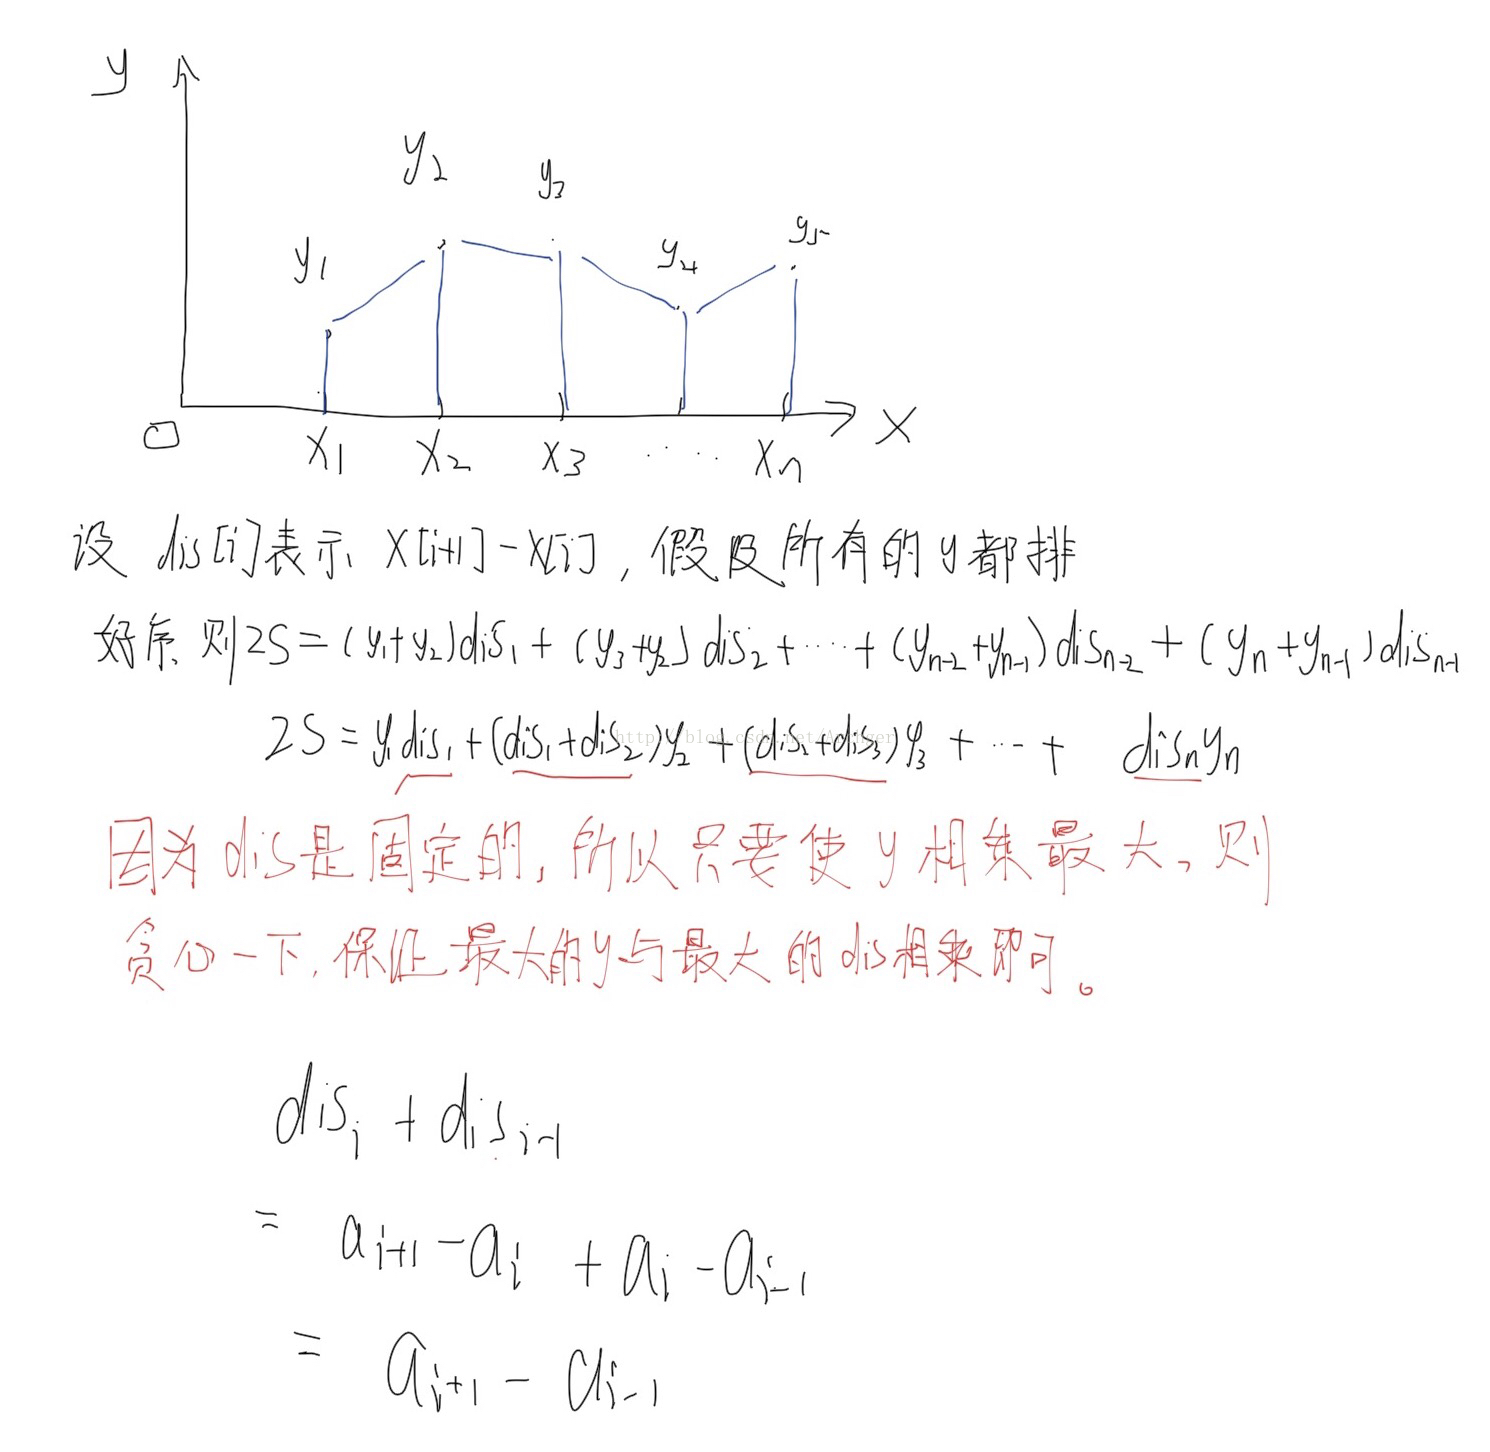 y
y₂
y₃
y₁
y₄
y₅
O
x₁ x₂ x₃ ····· xₙ
X
设 dis[i]表示 X[i+1]-X[i],假设所有的y都排
好序、则2S=(y₁+y₂)dis₁+(y₃+y₂)dis₂+···+(yₙ₋₂+yₙ₋₁)disₙ₋₂+(yₙ+yₙ₋₁)disₙ₋₁
2S=y₁dis₁+(dis₁+dis₂)y₂+(dis₂+dis₃)y₃+···+ disₙyₙ
因为dis是固定的,所以只要使y相乘最大,则
贪心一下,保证最大的y与最大的dis相乘即可。
disᵢ + disᵢ₋₁
= aᵢ₊₁ - aᵢ + aᵢ - aᵢ₋₁
= aᵢ₊₁ - aᵢ₋₁